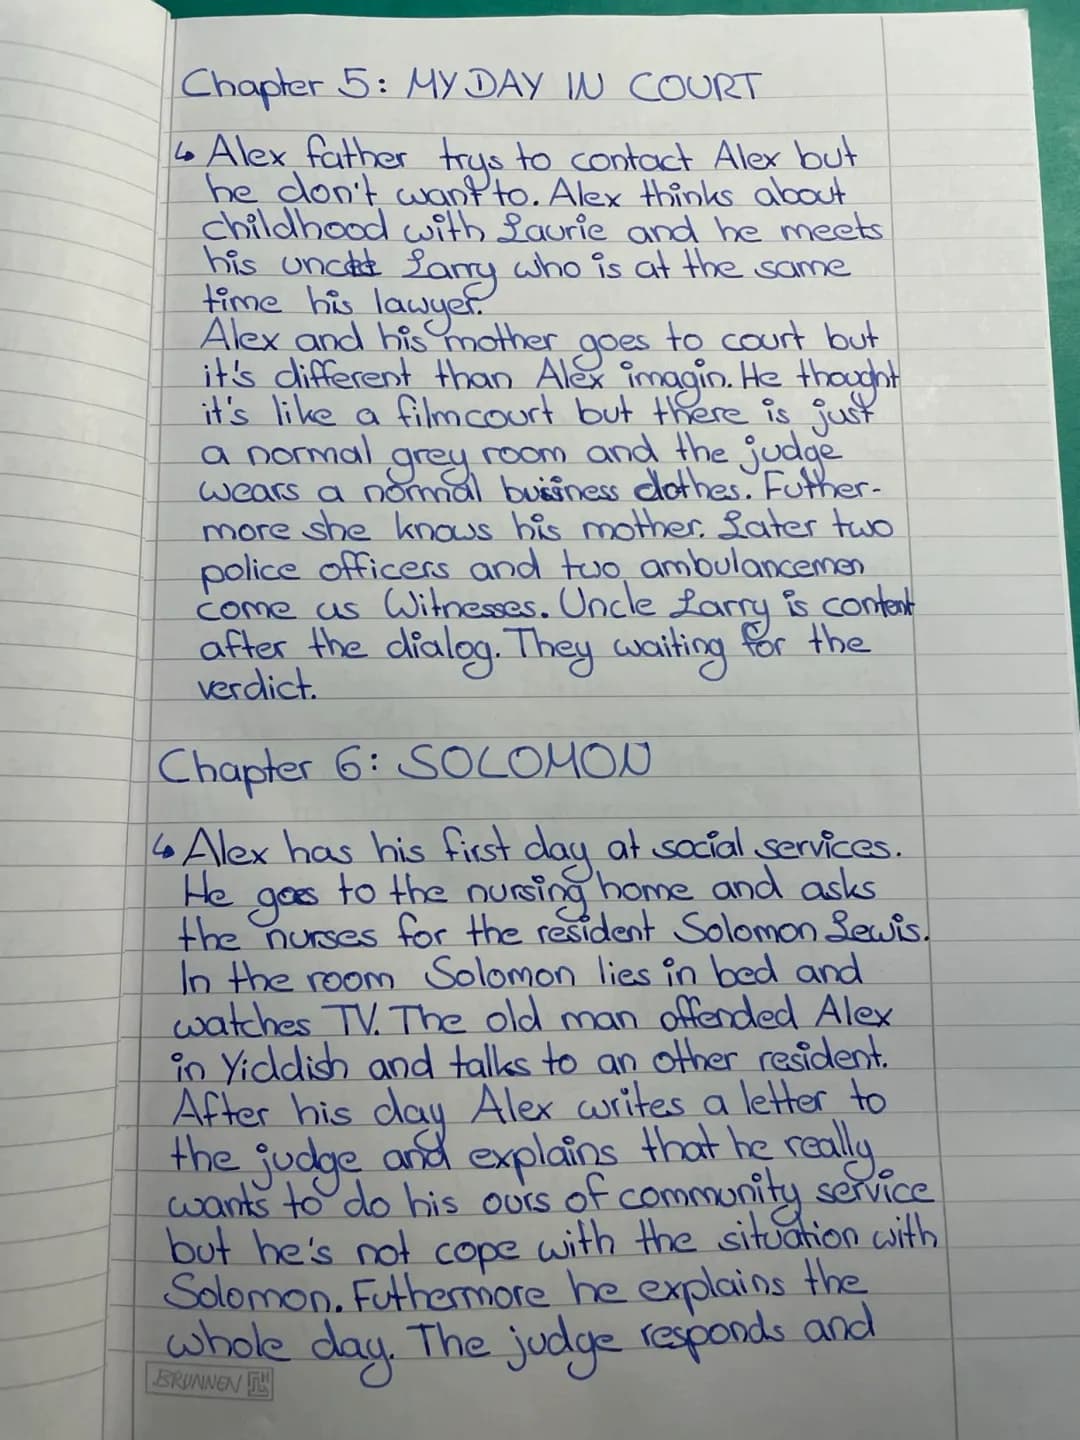 Chapter 5: MY DAY IN COURT
↳ Alex father trys to contact Alex but
he don't want to. Alex thinks about
childhood with Laurie and he meets
his Larry who is at the same
time his lawyer.
Alex and his mother goes to court but
it's different than Alex imagin. He thought
it's like a filmcourt but there is just
a normal grey room and the judge
wears a normal clothes. Futher-
more she knows his mother. Later two
police officers and two ambulancemen
come as Witnesses. Uncle Larry is content
after the dialog. They waiting for the
verdict.
Chapter 6: SOLOMON
↳ Alex has his first day at social services.
He goes to the nursing home and asks
the nurses for the resident Solomon Lewis.
In the room Solomon lies in bed and
watches TV. The old man offended Alex
in Yiddish and talks to an other resident.
After his day Alex writes a letter to
the judge and explains that he really
wants to do his ours of community service
but he's not cope with the situation with
Solomon. Futhermore he explains the
whole day. The judge responds and
BRUNNEN